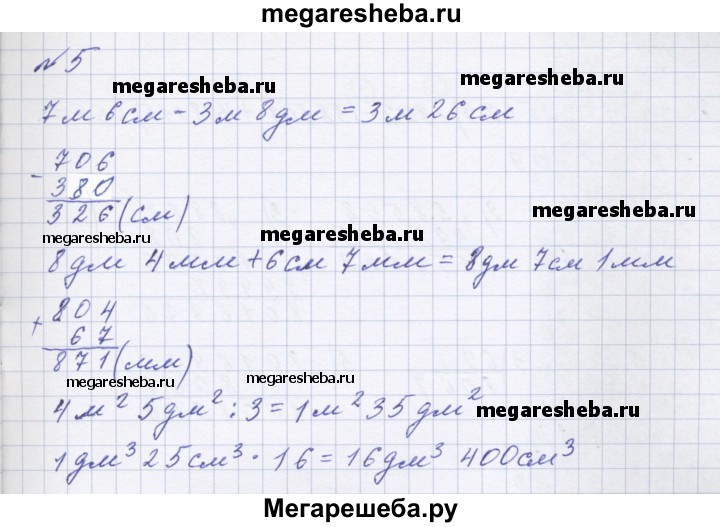 megaresheba.ru
№ 5
megaresheba.ru megaresheba.ru
7 м 6 см - 3 м 8 дм = 3 м 26 см
- 706
380
326 (см)
megaresheba.ru
megaresheba.ru megaresheba.ru
8 дм 4 мм + 6 см 7 мм = 8 дм 7 см 1 мм
+ 804
67
871 (мм)
megaresheba.ru megaresheba.ru
4 м² 5 дм² : 3 = 1 м² 35 дм²
megaresheba.ru
1 дм³ 25 см³ · 16 = 16 дм³ 400 см³
Мегарешеба.ру